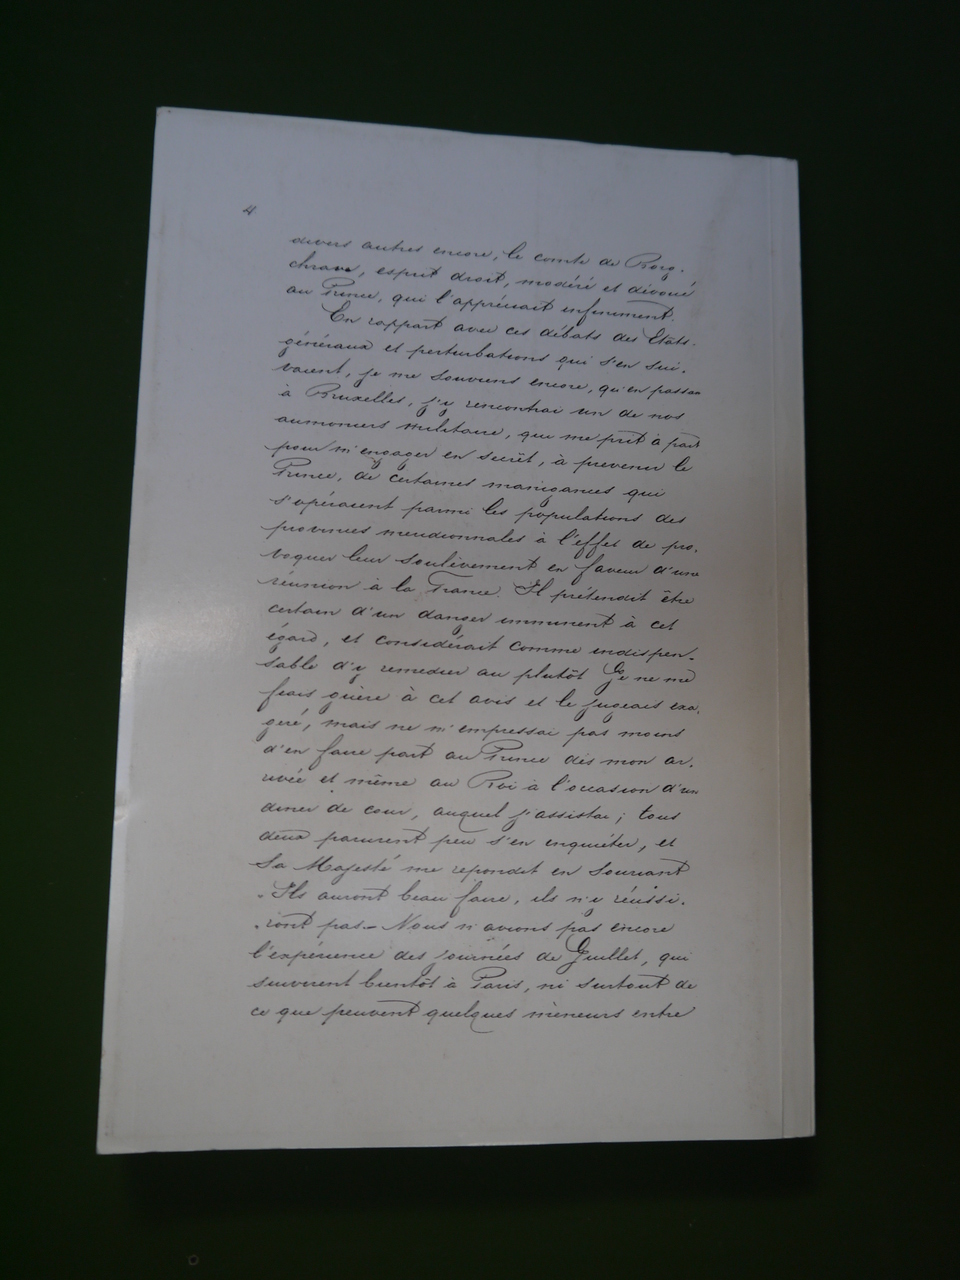 4.
divers autres encore; le comte de Borg-
chrave, esprit droit, modéré et dévoué
au Prince, qui l'appréciait infiniment.
En rapport avec ces débats des Etats-
généraux et perturbations qui s'en sui-
vaient, je me souviens encore, qu'en passan
à Bruxelles, j'y rencontrai un de nos
aumoniers militaire, qui me prit à part
pour m'engager en secrèt, à prevenir le
Prince, de certaines manigances qui
s'opéraient parmi les populations des
provinces meridionnales à l'effet de pro-
voquer leur soulèvement en faveur d'une
réunion à la France. Il prétendit être
certain d'un danger imminent à cet
égard, et considérait comme indispen-
sable d'y remedier au plutôt Je ne me
fiais guère à cet avis et le jugeais exa-
geré, mais ne m'empressai pas moins
d'en faire part au Prince dès mon ar-
rivée et même au Roi à l'occasion d'un
diner de cour, auquel j'assistai; tous
deux parurent peu s'en enquiéter, et
Sa Majesté me repondit en souriant
"Ils auront beau faire, ils n'y réussi-
"ront pas" – Nous n'avions pas encore
l'expérience des journées de Juillet, qui
suivirent bientôt à Paris, ni surtout de
ce que peuvent quelques meneurs entre